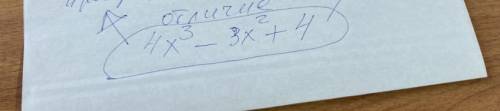 отлично
4x³ - 3x² + 4